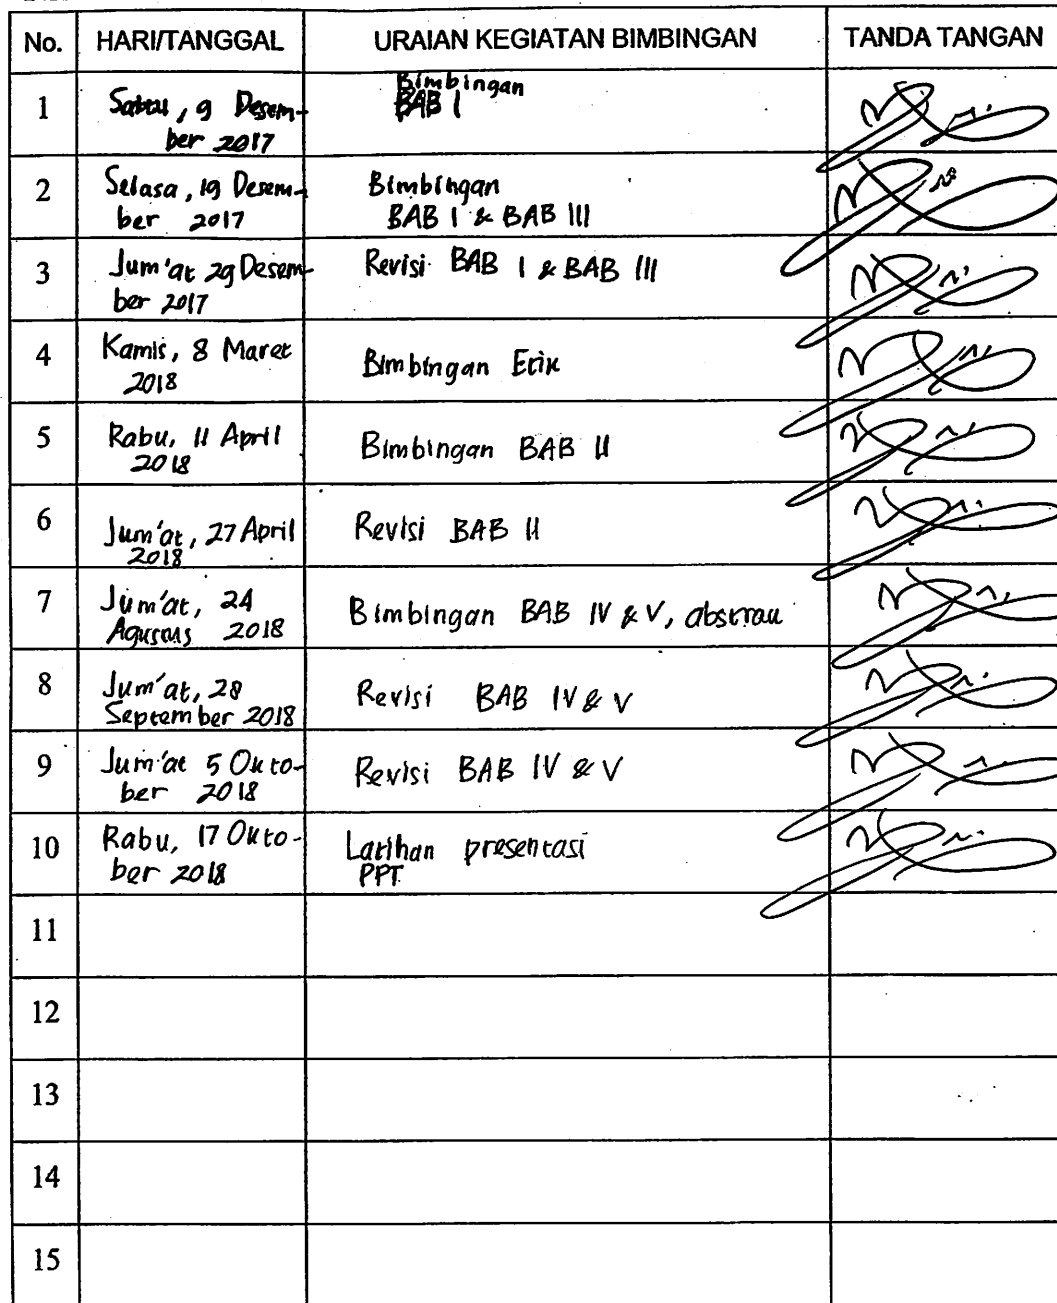 No. HARI/TANGGAL URAIAN KEGIATAN BIMBINGAN TANDA TANGAN
1 Sabtu, 9 Desem-
ber 2017
Bimbingan
BAB I
2 Selasa, 19 Desem-
ber 2017
Bimbingan
BAB I & BAB III
3 Jum'at 29 Desem-
ber 2017
Revisi BAB I & BAB III
4 Kamis, 8 Maret
2018
Bimbingan Etik
5 Rabu, 11 April
2018
Bimbingan BAB II
6 Jum'at, 27 April
2018
Revisi BAB II
7 Jum'at, 24
Agustus 2018
Bimbingan BAB IV & V, abstrak
8 Jum'at, 28
September 2018
Revisi BAB IV & V
9 Jum'at 5 Okto-
ber 2018
Revisi BAB IV & V
10 Rabu, 17 Okto-
ber 2018
Latihan presentasi
PPT
11
12
13
14
15